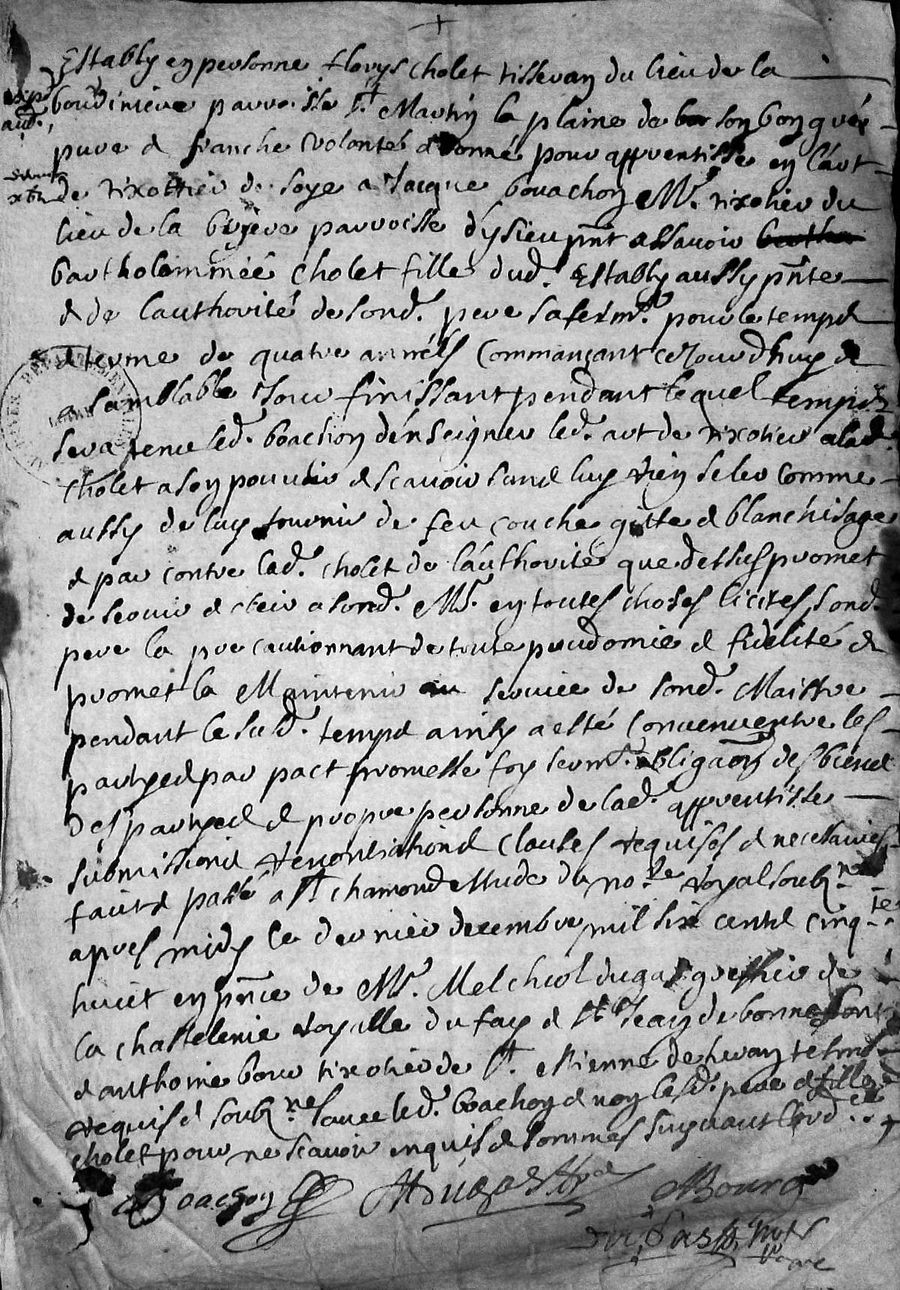 +
Establiy en personne florys cholet tisseran du lieu de la
boudiniere parroisse st Martin la plaine de son bon gré
pure & franche volonté a donné pour apprentisse en l'art
de tixottier de soye a Jacque boachon Mr. tixotier du
lieu de la bruyere parroisse d'ysieu pnt assavoir
bartholemmée cholet fille dud. Estably aussy pnte
& de l'authorité de sond. pere saferme pour le temps
& terme de quatre années commançant ce Jourdhuy &
a semblable Jour finissant pendant lequel temps
sera tenu led. boachon d'enseigner led. art de tixotier a lad.
cholet a son pouvoir & scavoir sans luy rien seler comme
aussy de luy fournir de feu couche gitte & blanchisage
& par contre lad. cholet de l'authorité que dessus promet
de servir & obeir a sond. Mr. en toutes choses licites, sond.
pere la precautionnant de toute prudomie & fidelité &
promet la Maintenir au service de sond. Maistre
pendant le sud. temps ainsy a esté convenu entre les
partyes par pact promesse foy serment obligaon des biens
des partyes & propre personne de lad. apprentisse
submissions renonciations clauses requises & necessaires
fait & passé a st chamond estude du nore royal soubne
apres midy le dernier decembre mil six cents cinqte
huict en pnce de Mr. Melchiol dugas greffier de
la chastelenie royalle du fay & st Jean de bonnefont
& anthoine bour tixotier de st. estienne de furan tesmoins
requis & soubnes avec led. boachon & non lesd. pere & fille
cholet pour ne scavoir enquis & sommés suyvant l'ord.ce
Boachon Adugas Bourg